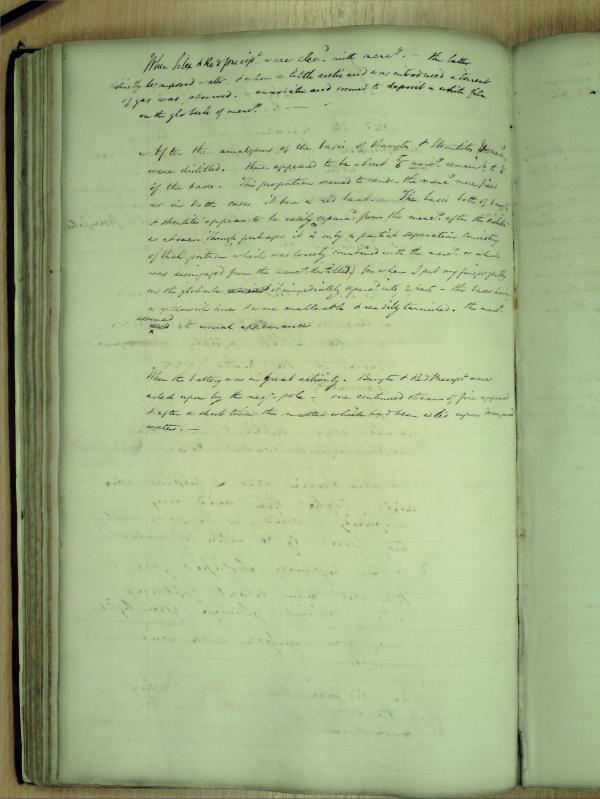 When Silex & Red precipt. were elecd. with mercy. – the latter
distinctly decomposed water, & when a little acetic acid was introduced a torrent
of gas was observed. – muriatic acid seemed to deposit a white film
on the globule of mercy. —
After the amalgams of the basis of Barytes & Strontites & mercy.
were distilled. there appeared to be about mercy. remaing. to
of the base. This proportion seemed to render the mercy. more fixed
as in both cases it bore a red heat. — The basis both of barytes
& strontites appears to be easily separd. from the mercy. after the distilln.
as above. Though perhaps it is only a partial separation consisting
of that portion which was loosely combined with the mercy. or which
was disengaged from the mercy. distilled, for when I put my finger gently
on the globule it immediately separd. into 2 parts – the base having
a yellowish hue & were malleable & readily tarnished. the mercy.
assumed its usual appearance
When the battery was in great activity. Barytes & Red Precipt. were
acted upon by the neg. pole – one continued stream of fire appeared
& after a short time the matter which had been acted upon decomposed
water. —